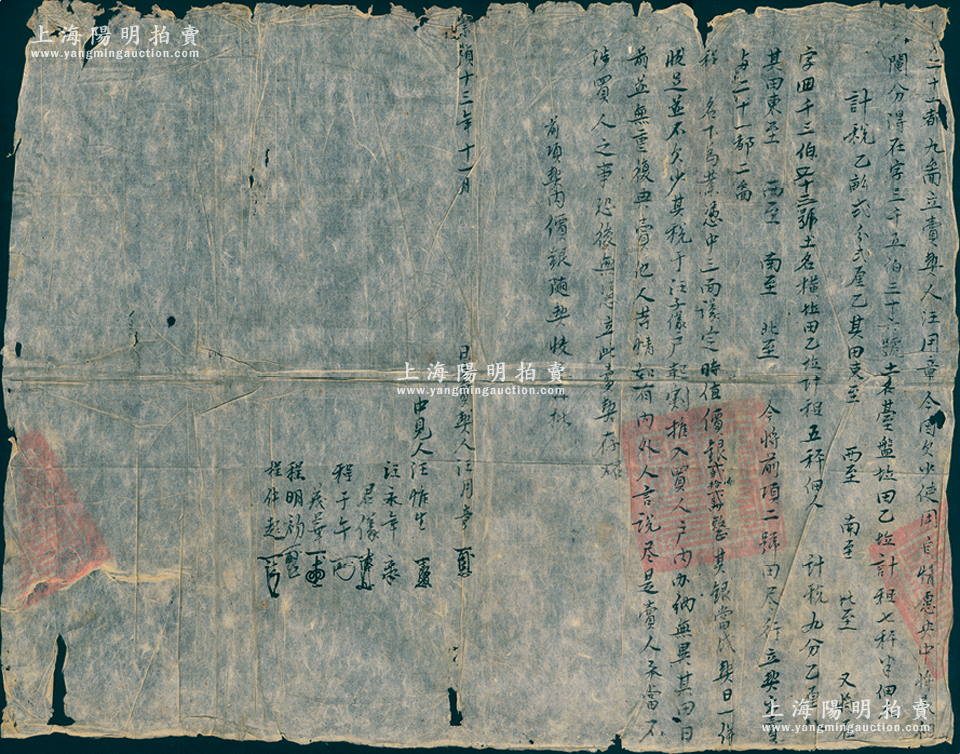 二十一都九啚立賣契人汪用章今因欠少使用自情愿央中將
鬮分得在字三千五伯三十六號土名基盤坵田乙坵計租七秤半佃
計稅乙畝弍分弍厘乙其田東至 西至 南至 北至 又將在
字四千三伯五十三號土名橫坵田乙坵計租五秤佃人 計稅九分乙厘
其田東至 西至 南至 北至 今將前項二號田尽行立契出賣
与二十一都二啚
程 名下為業憑中三面議定時值價銀 整其銀當成契日一併
收足並不欠少其稅于汪子儀戶起割推入買人戶內办納無異其田日
前並無重復典賣他人等情如有內外人言說尽是賣人承當不
涉買人之事恐後無憑立此賣契存炤
前項契內價銀隨契收 批
崇禎十三年十一月 日立賣契人汪用章
中見人汪惟生
汪永年
君儀
程于午
茂華
程明初
程仲起
上海陽明拍賣
www.yangmingauction.com
上海陽明拍賣
www.yangmingauction.com
上海陽明拍賣
www.yangmingauction.com